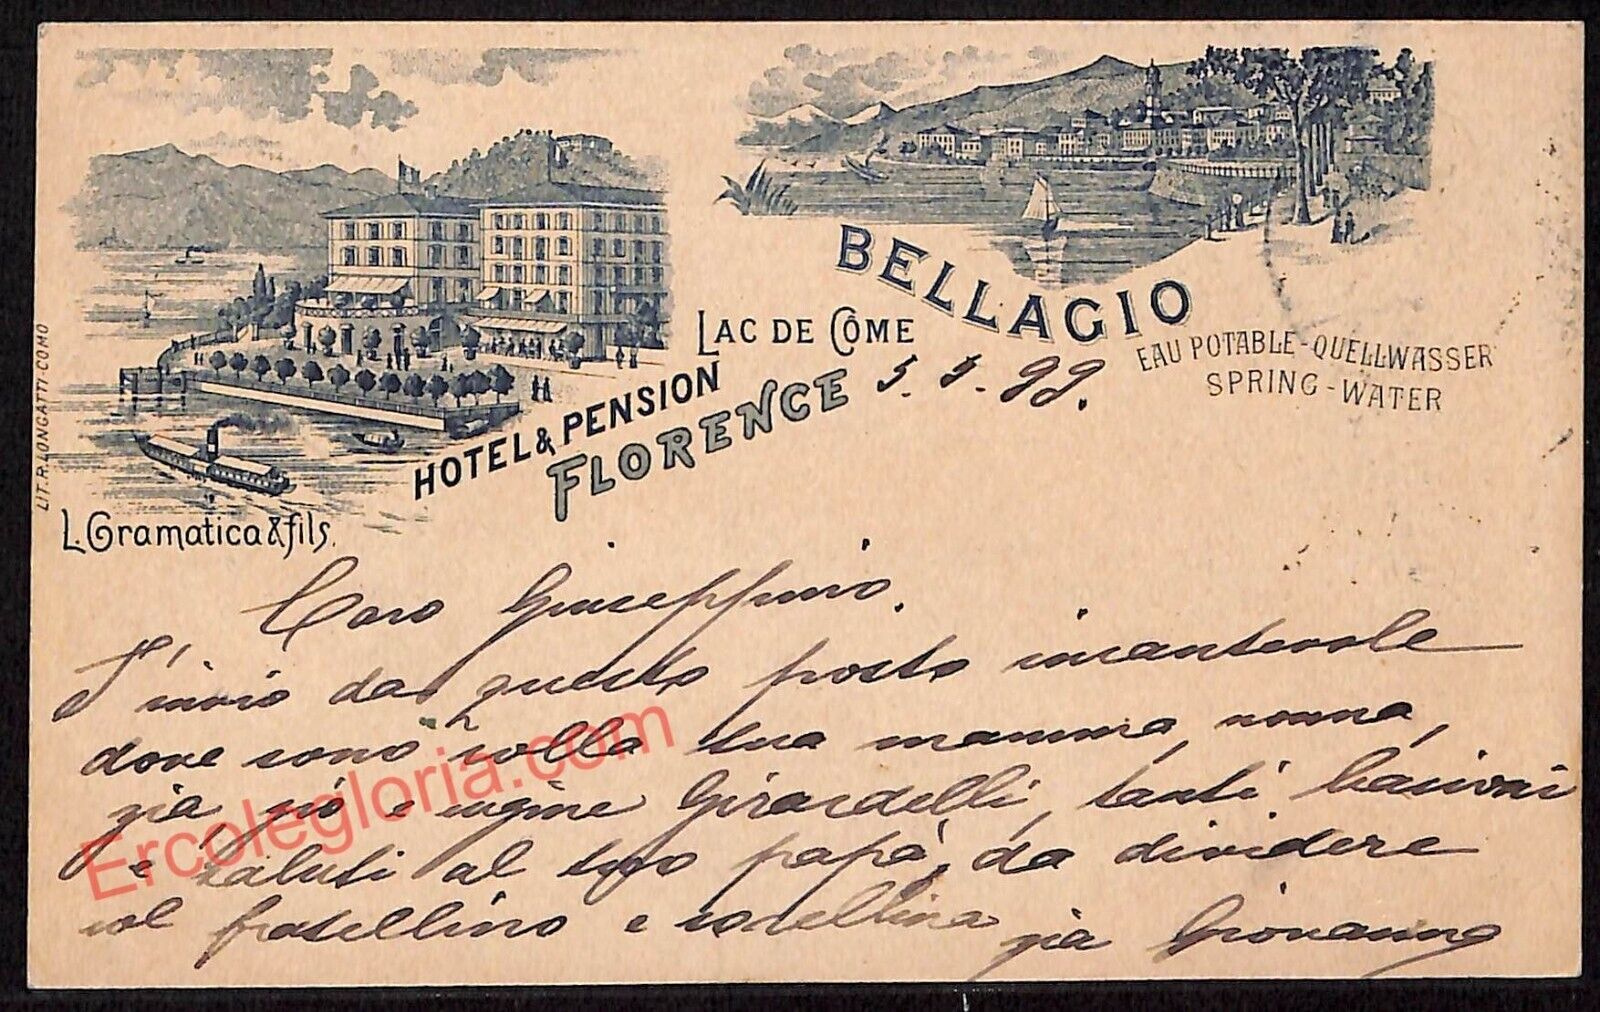 BELLAGIO
LAC DE CÔME
EAU POTABLE-QUELLWASSER
SPRING-WATER
HOTEL & PENSION
FLORENCE
5.5.99.
LIT.R.LONGATTI-COMO
L. Gramatica & fils.
Caro Giuseppino.
T'invio da questo posto incantevole
dove sono colla tua mamma, nonna,
zia, zio e cugine Girardelli, tanti bacioni
e saluti al tuo papà, da dividere
col fratellino e sorellina zia Giovanna
Ercolegloria.com